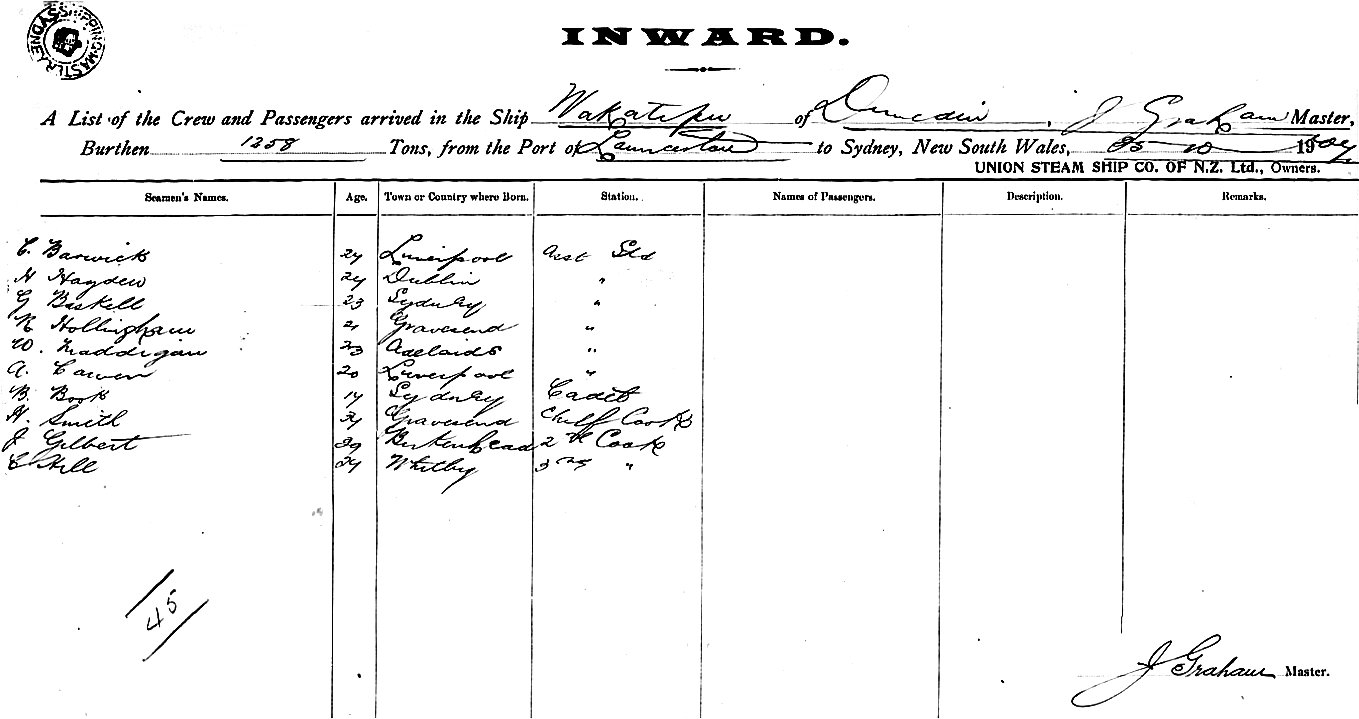 SHIPPING MASTER SYDNEY
INWARD.
A List of the Crew and Passengers arrived in the Ship Wakatipu of Dunedin, J Graham Master,
Burthen 1258 Tons, from the Port of Launceston to Sydney, New South Wales, 25 10 1907
UNION STEAM SHIP CO. OF N.Z. Ltd., Owners.
Seamen's Names. Age. Town or Country where Born. Station. Names of Passengers. Description. Remarks.
C. Barwick 24 Liverpool Asst Std
H Hayden 24 Dublin "
G Baskell 23 Sydney "
R Hollingham 21 Gravesend "
W. Maddigan 23 Adelaide "
A. Cawen 20 Liverpool "
B. Book 17 Sydney Cadet
H. Smith 34 Gravesend Chief Cook
J Gilbert 29 Birkenhead 2nd Cook
C Hill 24 Whitby 3rd "
45
J Graham Master.